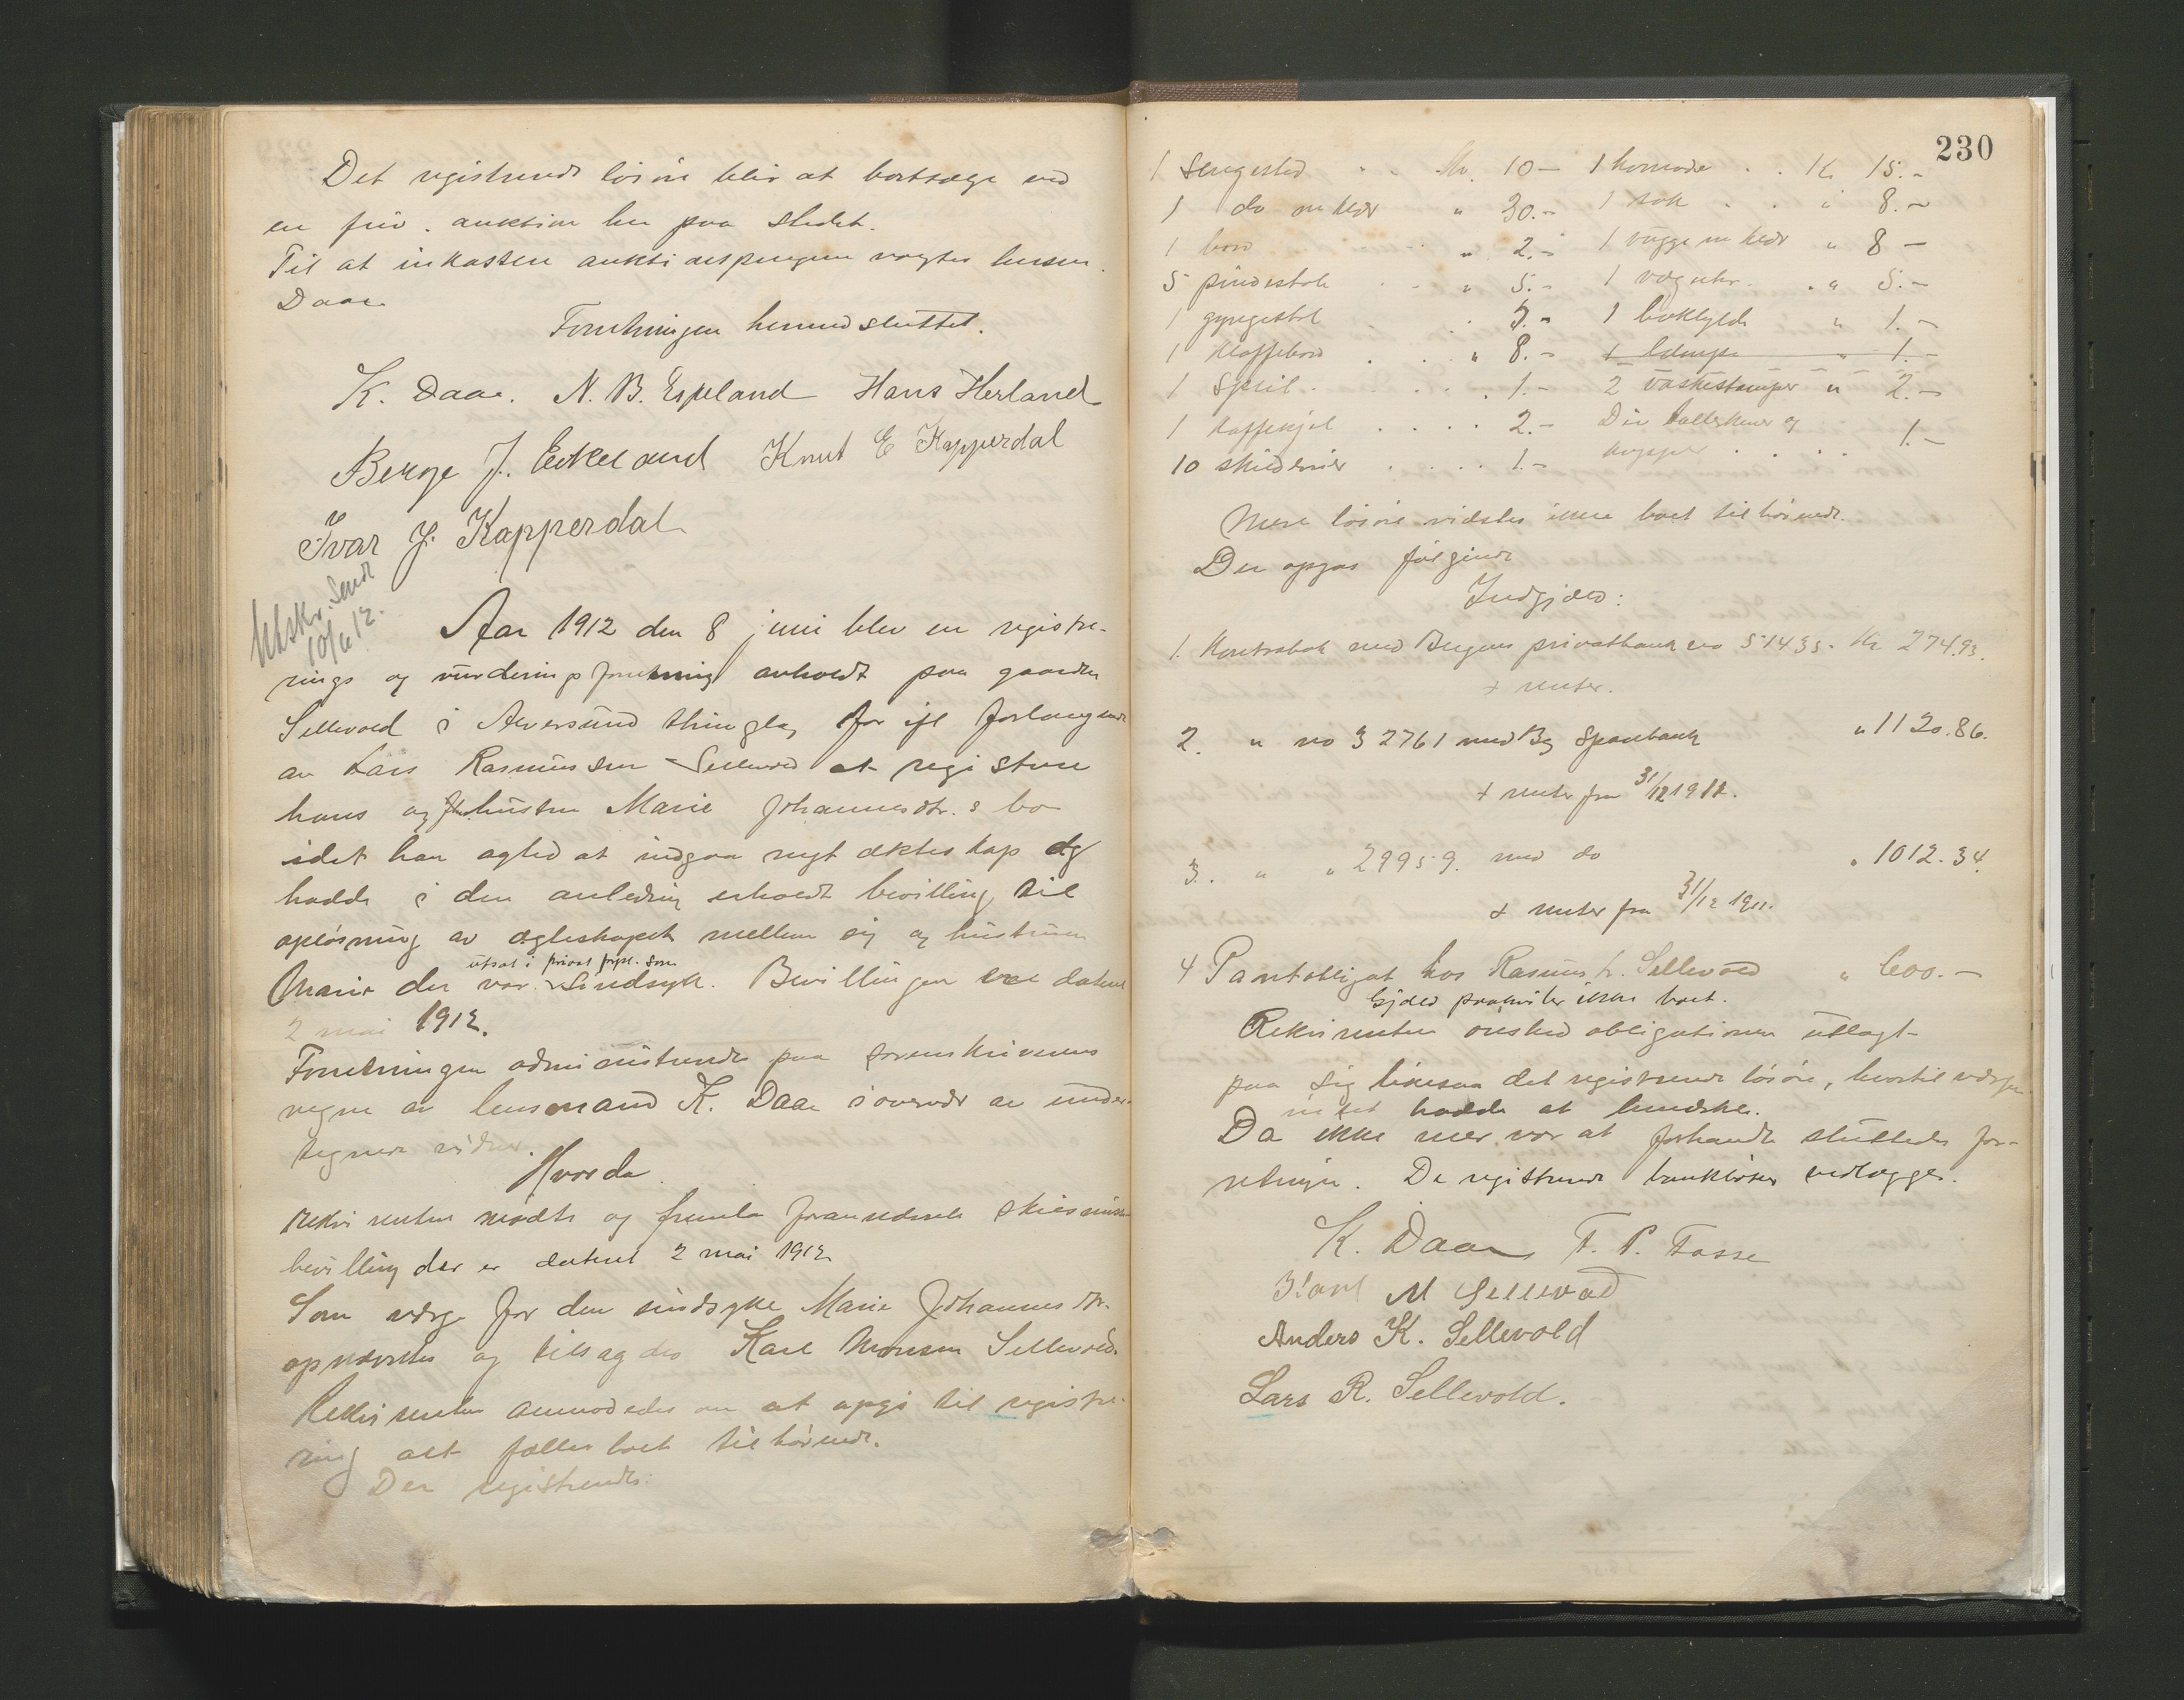 Det registrerede løsøre blir at bortsælge ved
en friv. auktion her paa stedet.
Til at inkassere auktionspengene valgtes lensm.
Daae
Forretningen hermed sluttet.
K. Daae. N. B. Espeland Hans Herland
Berge J. Eikeland Knut E Kapperdal
Ivar J. Kapperdal
Utskr. Sendt
10/6 12.
Aar 1912 den 8 juni blev en registre-
rings og vurderingsforretning avholdt paa gaarden
Sellevold i Alversund thinglag for ifl forlangende
av Lars Rasmussen Sellevold at registrere
hans og hustru Marie Johannesdtr.s bo
idet han agted at indgaa nyt ekteskap og
hadde i den anledning erholdt bevilling til
opløsning av egteskapet mellem sig og hustruen
utsat i privat forpl. som
Marie der var Sindsyk. Bevillingen var dateret
2 mai 1912.
Forretningen administreredes paa sorenskriverens
vegne av lensmand K. Daae i overvær av under-
tegnede vidner.
Hvorda
Rekvirenten mødte og fremla foranstaaende skilsmisse
bevilling der er dateret 2 mai 1912
Som verge for den sindsyke Marie Johannesdtr.
opnævntes og tilsagdes Karl Monsen Sellevold.
Rekvirenten anmodedes om at opgi til registre-
ring alt fællesboet tilhørende.
Der registreredes:
230
1 Sengested . . Kr. 10 — 1 komode . . Kr 15.-
1 do m klær " 30.- 1 . . " 8.-
1 bord " 2.- 1 vugge m klær " 8 —
5 pindestole . . " 5.- 1 væguhr. . " 5.-
1 gyngestol . . 5.- 1 bokhylde " 1.-
1 Klaffebord . . " 8.- 1 lampe " 1.-
1 Speil . . . 1.- 2 vaskestamper " 2.-
1 Kaffekjel . . . . 2.- Div tallerkener og
10 skilderier . . . . 1.- kopper . . . . 1.-
Mere løsøre vidstes ikke boet tilhørende.
Der opgas følgende
Indgjæld:
1. Kontrabok med Bergens privatbank no 51435. Kr 274.93.
+ renter.
2. " no 32761 med Bg Sparebank " 1120.86.
+ renter fra 31/12 1911.
3. " " 29959. med do " 1012.34.
+ renter fra 31/12 1911.
4 Pantobligat hos Rasmus L. Sellevold " 600.—
Gjæld paahviler ikke boet.
Rekvirenten ønsked obligationen utlagt
paa sig likesaa det registrerede løsøre, hvortil vergen
intet hadde at bemerke.
Da ikke mer var at forhandle sluttedes for-
retningen. De registrerede bankbøker vedlægges.
K. Daae F. P. Fosse
Karl M Sellevold
Anders K. Sellevold
Lars R. Sellevold.